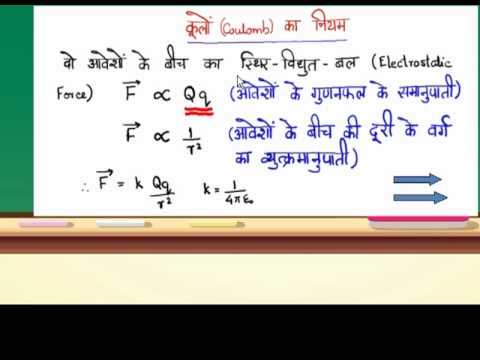 कूलों (Coulomb) का नियम
वो आवेशों के बीच का स्थिर-विद्युत-बल (Electrostatic
Force) F→ ∝ Qq (आवेशों के गुणनफल के समानुपाती)
F→ ∝ 1/r² (आवेशों के बीच की दूरी के वर्ग
का व्युत्क्रमानुपाती)
∴ F→ = k Qq/r² k = 1/4πε₀